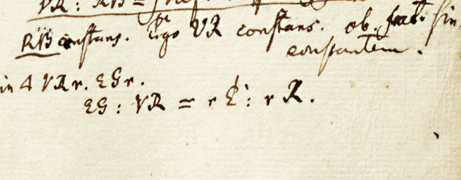 VR : RB =
RB constans. Ergo VR constans. ob
constantem.
in Δ VRr. EGr.
EG : VR = rE : rR.